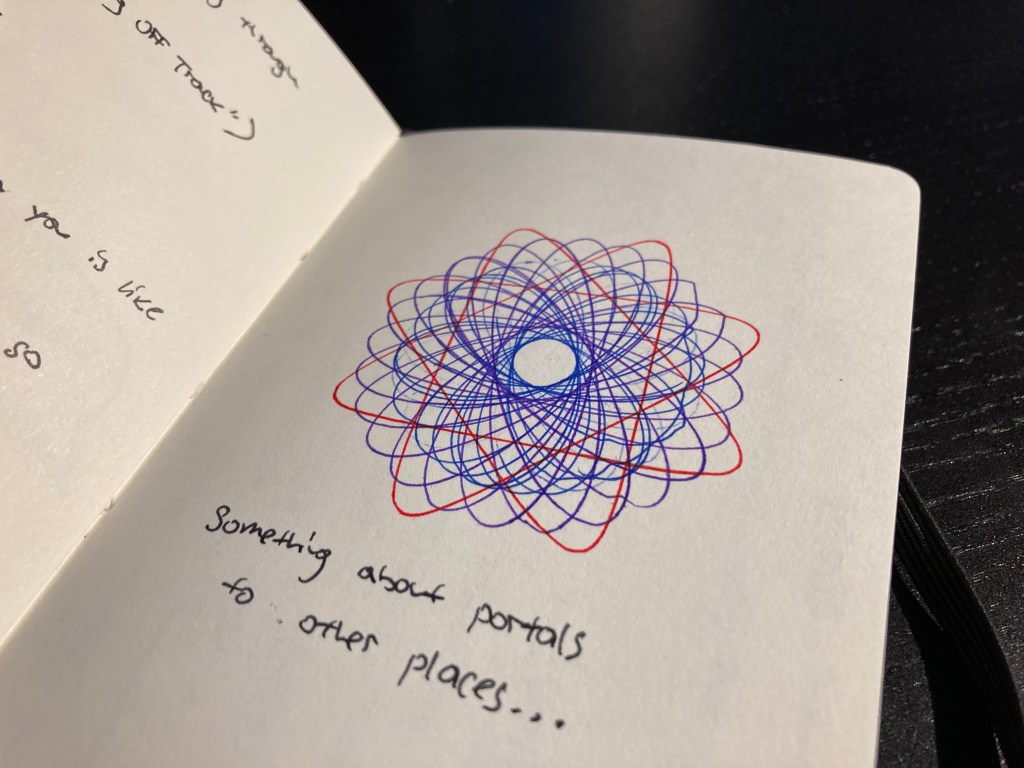 through
OFF Track :)
you is like
so
Something about portals
to other places...